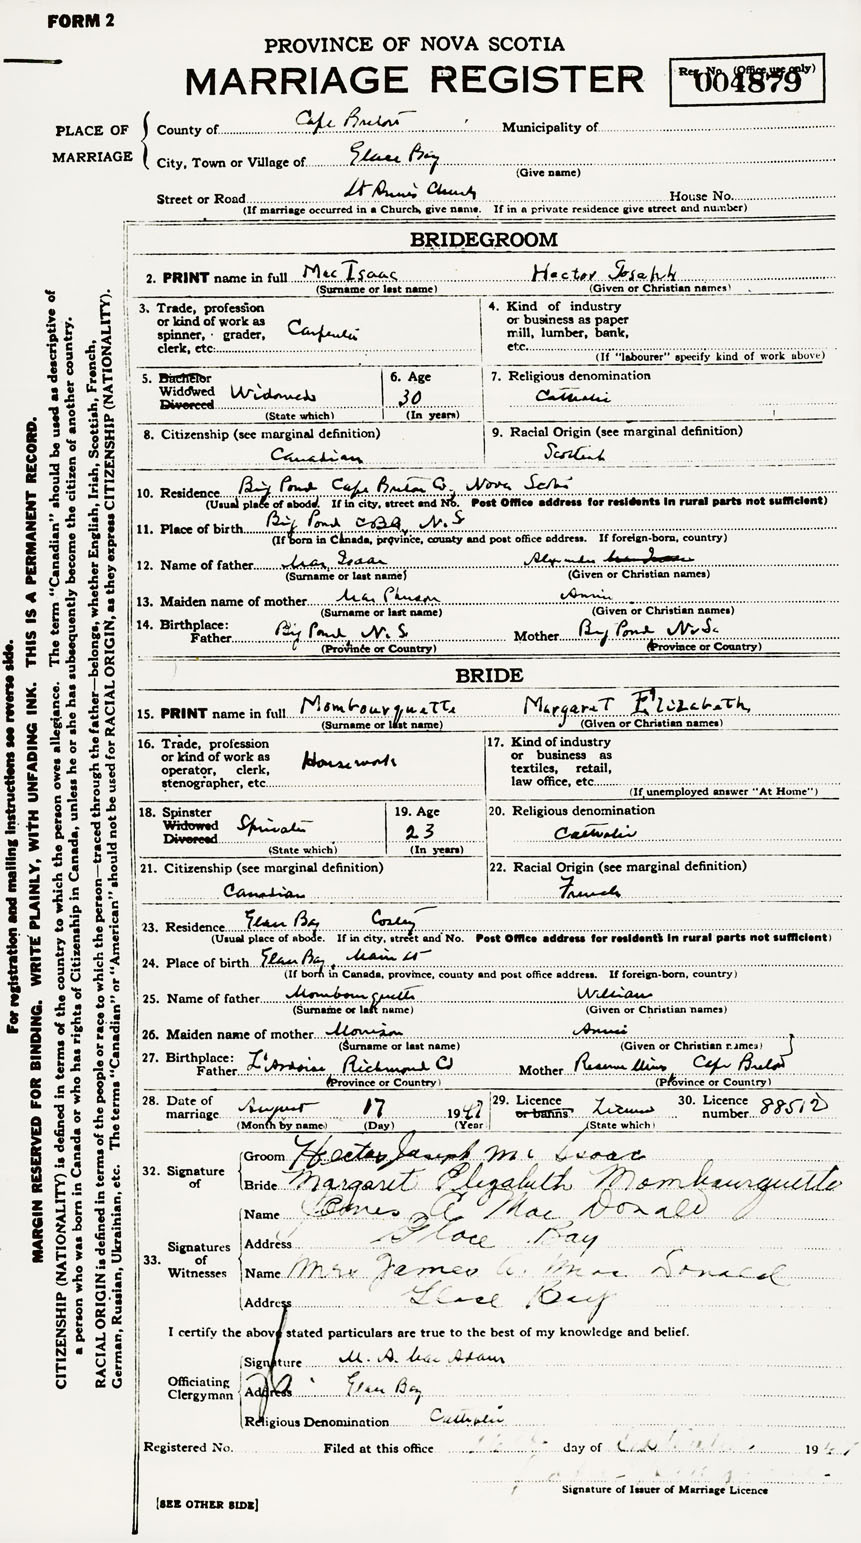 FORM 2
PROVINCE OF NOVA SCOTIA
MARRIAGE REGISTER
Reg. No. (Office use only)
004879
PLACE OF MARRIAGE
County of Cape Breton Municipality of
City, Town or Village of Glace Bay
(Give name)
Street or Road St Ann's Church House No.
(If marriage occurred in a Church, give name. If in a private residence give street and number)
BRIDEGROOM
2. PRINT name in full Mac Isaac Hector Joseph
(Surname or last name) (Given or Christian names)
3. Trade, profession or kind of work as spinner, grader, clerk, etc. Carpenter
4. Kind of industry or business as paper mill, lumber, bank, etc.
(If "labourer" specify kind of work above)
5. Bachelor Widowed Divorced Widowed
(State which)
6. Age 30
(In years)
7. Religious denomination
Catholic
8. Citizenship (see marginal definition)
Canadian
9. Racial Origin (see marginal definition)
Scottish
10. Residence Big Pond Cape Breton Co, Nova Scotia
(Usual place of abode. If in city, street and No. Post Office address for residents in rural parts not sufficient)
11. Place of birth Big Pond C.B.Co, N.S
(If born in Canada, province, county and post office address. If foreign-born, country)
12. Name of father Mac Isaac Alexander Mac Isaac
(Surname or last name) (Given or Christian names)
13. Maiden name of mother Mac Pherson Annie
(Surname or last name) (Given or Christian names)
14. Birthplace: Father Big Pond, N.S Mother Big Pond N.S.
(Province or Country) (Province or Country)
BRIDE
15. PRINT name in full Mombourquette Margaret Elizabeth
(Surname or last name) (Given or Christian names)
16. Trade, profession or kind of work as operator, clerk, stenographer, etc. Housework
17. Kind of industry or business as textiles, retail, law office, etc.
(If unemployed answer "At Home")
18. Spinster Widowed Divorced Spinster
(State which)
19. Age 23
(In years)
20. Religious denomination
Catholic
21. Citizenship (see marginal definition)
Canadian
22. Racial Origin (see marginal definition)
French
23. Residence Glace Bay
(Usual place of abode. If in city, street and No. Post Office address for residents in rural parts not sufficient)
24. Place of birth Glace Bay, Main St
(If born in Canada, province, county and post office address. If foreign-born, country)
25. Name of father Mombourquette William
(Surname or last name) (Given or Christian names)
26. Maiden name of mother Morrison Annie
(Surname or last name) (Given or Christian names)
27. Birthplace: Father L'Ardoise, Richmond Co Mother Reserve Mines Cape Breton
(Province or Country) (Province or Country)
28. Date of marriage August 17 1947
(Month by name) (Day) (Year)
29. Licence or banns License
(State which)
30. Licence number 88512
32. Signature of
Groom Hector Joseph Mc Isaac
Bride Margaret Elizabeth Mombourquette
33. Signatures of Witnesses
Name James A Mac Donald
Address Glace Bay
Name Mrs James A. Mac Donald
Address Glace Bay
I certify the above stated particulars are true to the best of my knowledge and belief.
Officiating Clergyman
Signature M. A. Mac Adam
Address Glace Bay
Religious Denomination Catholic
Registered No. Filed at this office day of 194
Signature of Issuer of Marriage Licence
[SEE OTHER SIDE]
For registration and mailing instructions see reverse side.
MARGIN RESERVED FOR BINDING. WRITE PLAINLY, WITH UNFADING INK. THIS IS A PERMANENT RECORD.
CITIZENSHIP (NATIONALITY) is defined in terms of the country to which the person owes allegiance. The term "Canadian" should be used as descriptive of
a person who was born in Canada or who has rights of Citizenship in Canada, unless he or she has subsequently become the citizen of another country.
RACIAL ORIGIN is defined in terms of the people or race to which the person—traced through the father—belongs, whether English, Irish, Scottish, French,
German, Russian, Ukrainian, etc. The terms "Canadian" or "American" should not be used for RACIAL ORIGIN, as they express CITIZENSHIP (NATIONALITY).